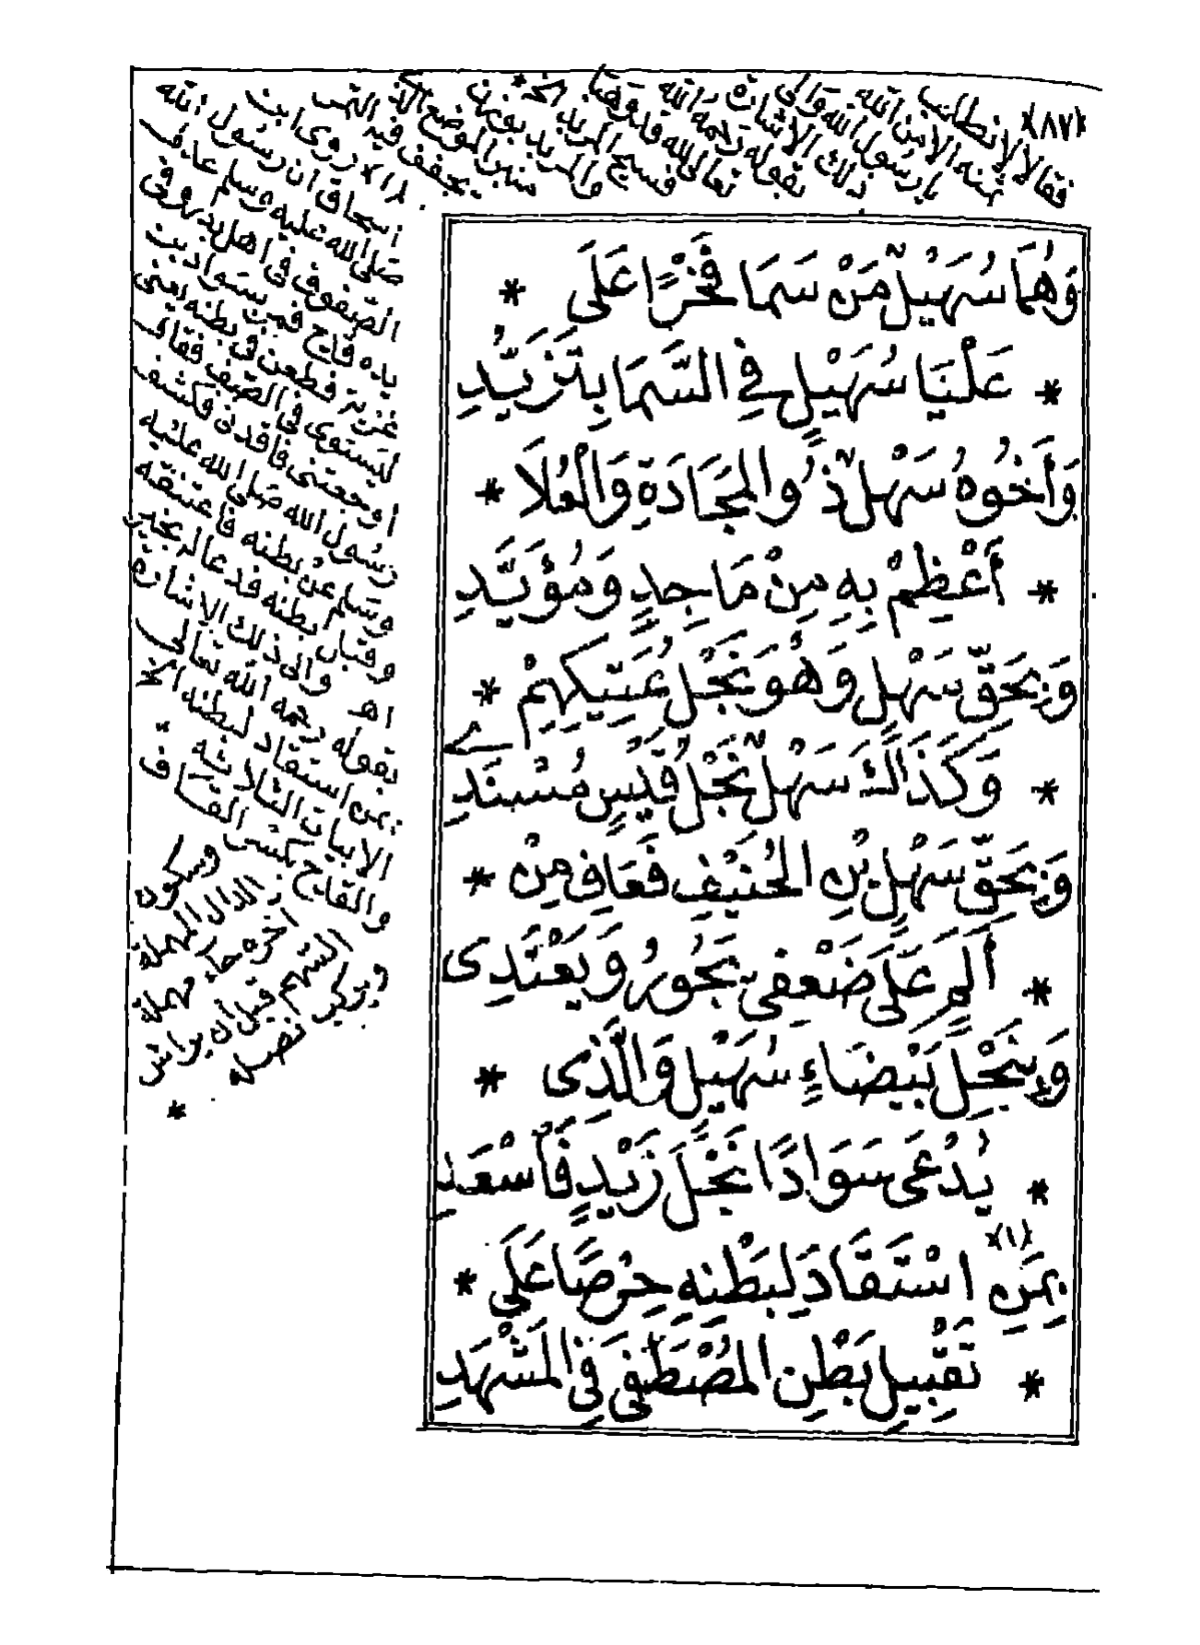 (٨٧)
فقالا لا نطلب
ثمنه الا من الله
يا رسول الله والى
ذلك الاشارة
بقوله رحمه الله
تعالى لله قلوهبا الخ *
فسيح المربد
والمربد بوزن
منبر الموضع الذي
يجفف فيه التمر
(١) روى ابن
اسحاق ان رسول الله
صلى الله عليه وسلم عدل
الصفوف في اهل بدر وفي
يده قدح فمر بسواد بن
غزية فطعن في بطنه يعني
ليستوى في الصف فقال
اوجعتنى فاقدنى فكشف
رسول الله صلى الله عليه
وسلم عن بطنه فاعتنقه
وقبل بطنه فدعا له بخير
اهـ والى ذلك الاشارة
بقوله رحمه الله تعالى
بمن استقاد لبطنه الخ
الابيات الثلاثة *
والقدح بكسر القاف
وسكون
الدال المهملة
اخره حاء مهملة
السهم قبل ان يراش
ويركب نصله
*
وَهُمَا سُهَيْلٌ مَنْ سَمَا فَخْرًا عَلَى *
* عَلْيَا سُهَيْلٍ فِي السَّمَا بِتَزَيُّدِ
وَأَخُوهُ سَهْلٌ ذُو الْمَجَادَةِ وَالْعُلَا *
* أَعْظِمْ بِهِ مِنْ مَاجِدٍ وَمُؤَيَّدِ
وَبِحَقِّ سَهْلٍ وَهُوَ نَجْلُ عَتِيكِهِمْ *
* وَكَذَاكَ سَهْلٌ نَجْلُ قَيْسٍ مُسْنَدِي
وَبِحَقِّ سَهْلِ بْنِ الْحُنَيْفِ فَعَافِ مِنْ *
* أَلَمٍ عَلَى ضَعْفِي يَجُورُ وَيَعْتَدِى
وَبِنَجْلِ بَيْضَاءٍ سُهَيْلٍ وَالَّذِى *
* يُدْعَى سَوَادًا نَجْلَ زَيْدٍ فَأَسْعَدِ
بِمَنِ (١) اسْتَقَادَ لِبَطْنِهِ حِرْصًا عَلَى *
* تَقْبِيلِ بَطْنِ الْمُصْطَفَى فِي الْمَشْهَدِ